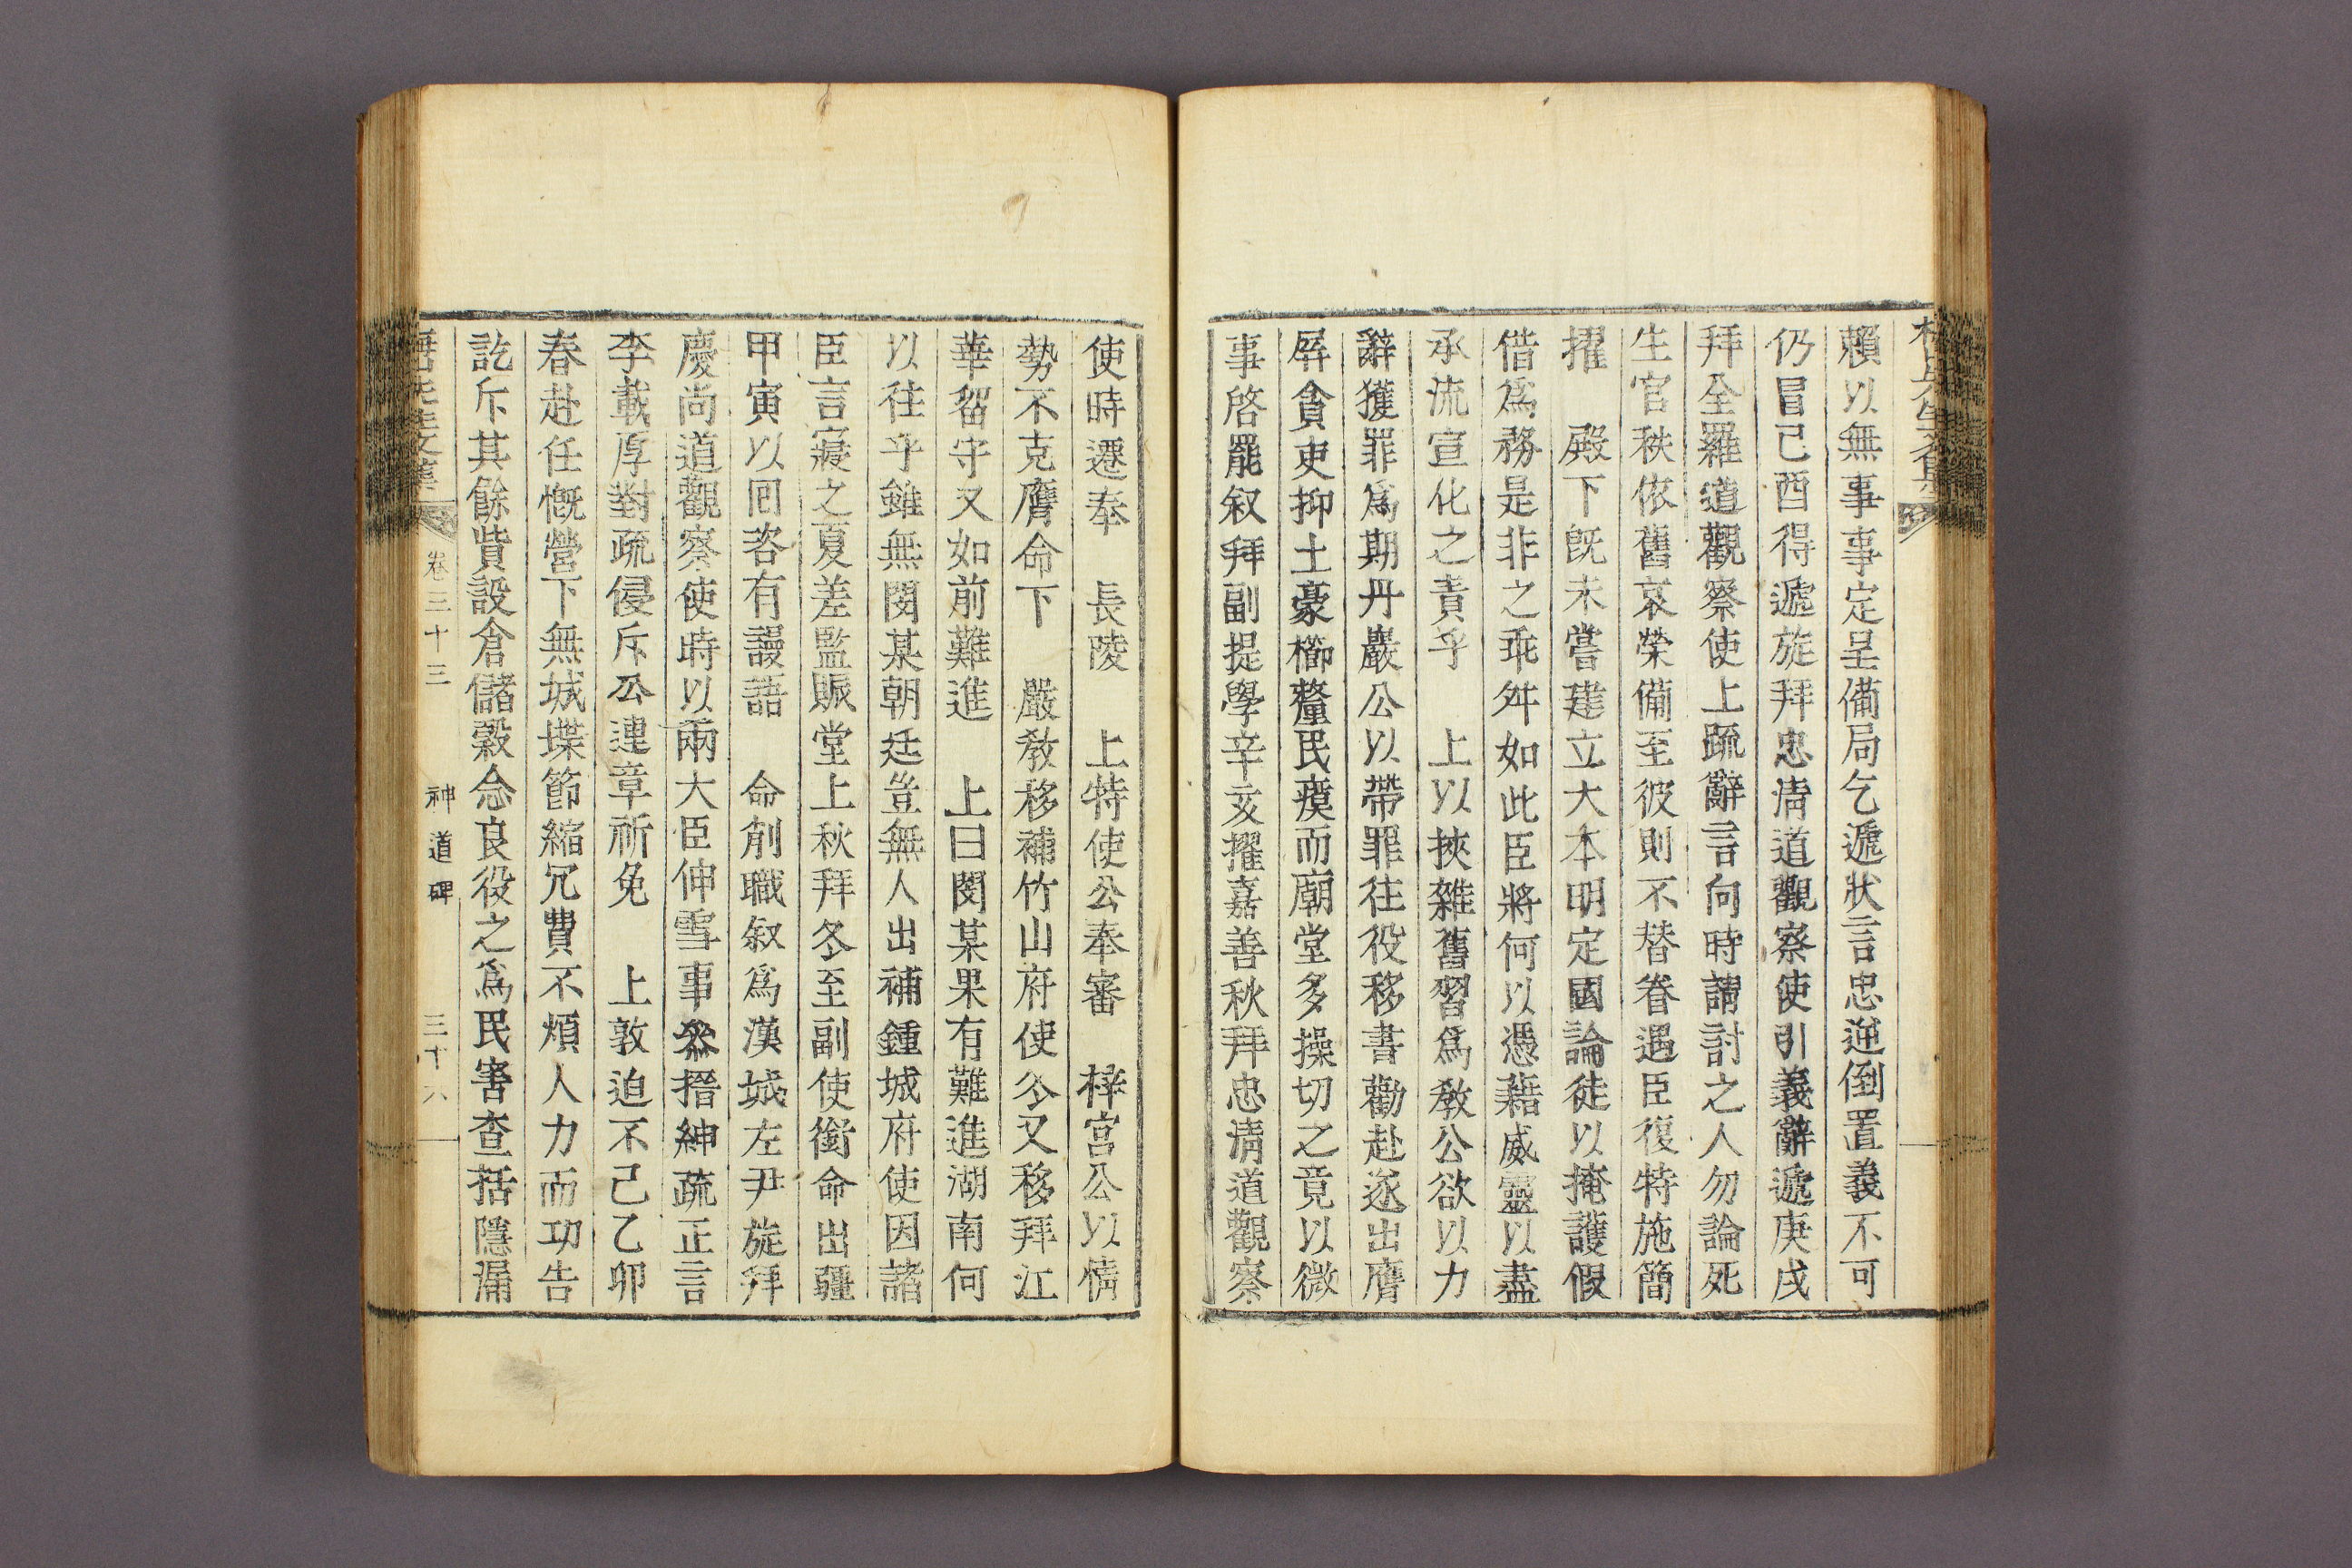 賴以無事事定呈備局乞遞狀言忠逆倒置義不可
仍冒己酉得遞旋拜忠清道觀察使引義辭遞庚戌
拜全羅道觀察使上疏辭言向時請討之人勿論死
生官秩依舊哀榮備至彼則不替眷遇臣復特施簡
擢　殿下旣未嘗建立大本明定國論徒以掩護假
借爲務是非之乖舛如此臣將何以憑藉威靈以盡
承流宣化之責乎　上以挾雜舊習爲敎公欲以力
辭獲罪爲期丹巖公以帶罪往役移書勸赴遂出膺
屛貪吏抑土豪櫛釐民瘼而廟堂多操切之竟以微
事啓罷叙拜副提學辛亥擢嘉善秋拜忠淸道觀察
使時遷奉　長陵　上特使公奉審　梓宮公以情
勢不克膺命下　嚴敎移補竹山府使今又移拜江
華留守又如前難進　上曰閔某果有難進湖南何
以往乎雖無閔某朝廷豈無人出補鍾城府使因諸
臣言寢之夏差監賑堂上秋拜冬至副使銜命出疆
甲寅以回咨有謾語　命削職叙爲漢城左尹旋拜
慶尙道觀察使時以兩大臣伸雪事叅搢紳疏正言
李載厚對疏侵斥公連章祈免　上敦迫不已乙卯
春赴任慨營下無城堞節縮冗費不煩人力而功告
訖斥其餘貲設倉儲穀念良役之爲民害查括隱漏
卷三十三　神道碑　三十六